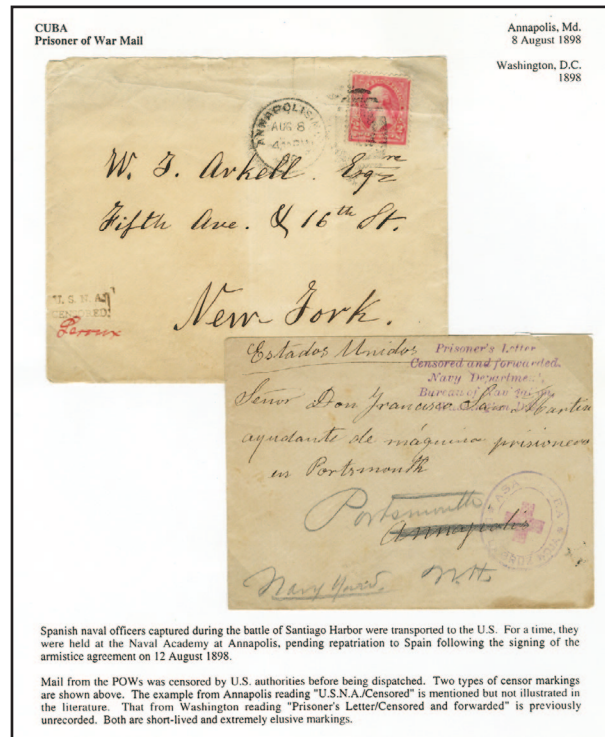 CUBA
Prisoner of War Mail
Annapolis, Md.
8 August 1898
Washington, D.C.
1898
ANNAPOLIS
AUG 8
W. J. Arkell. Esqre
Fifth Ave. & 16th St.
New York.
U. S. N. A.
CENSORED
Estados Unidos
Prisoner's Letter
Censored and forwarded.
Navy Department,
Bureau of
Señor Don Francisco San Martin
ayudante de máquina prisionero
en Portsmouth
Portsmouth
Annapolis
Navy Yard. N.H.
Spanish naval officers captured during the battle of Santiago Harbor were transported to the U.S. For a time, they
were held at the Naval Academy at Annapolis, pending repatriation to Spain following the signing of the
armistice agreement on 12 August 1898.
Mail from the POWs was censored by U.S. authorities before being dispatched. Two types of censor markings
are shown above. The example from Annapolis reading "U.S.N.A./Censored" is mentioned but not illustrated in
the literature. That from Washington reading "Prisoner's Letter/Censored and forwarded" is previously
unrecorded. Both are short-lived and extremely elusive markings.